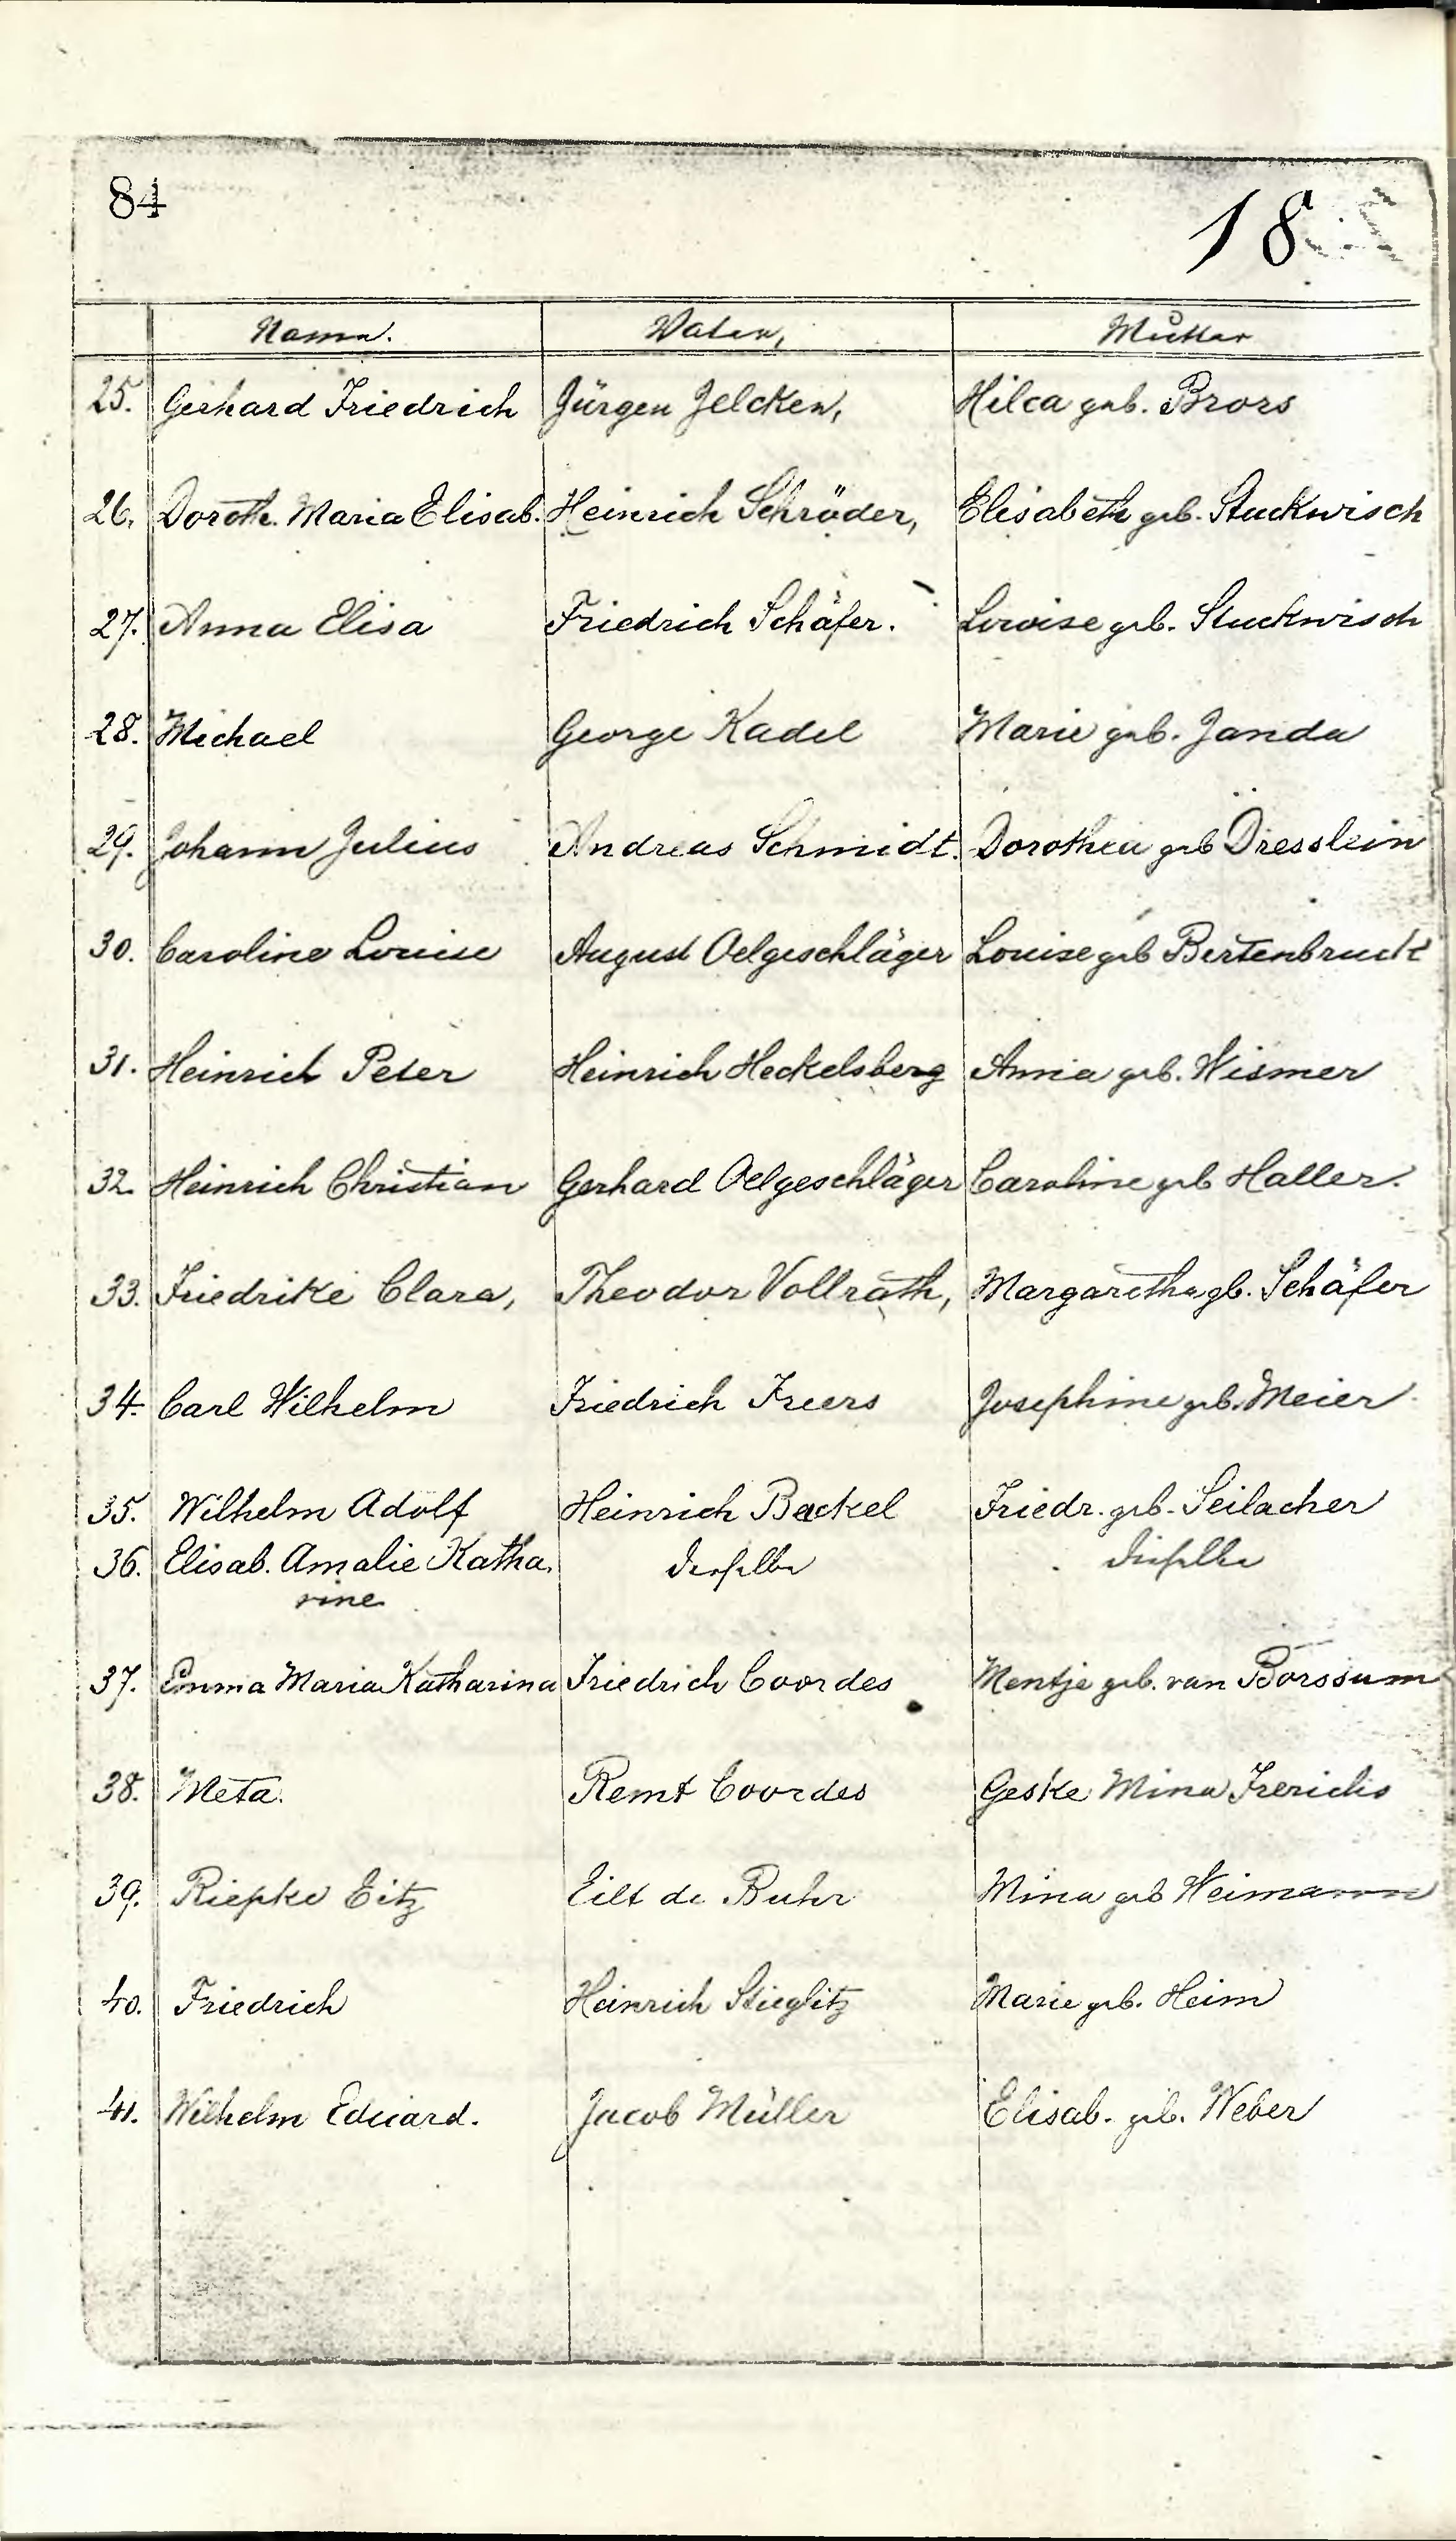 84
18
Name. Vater, Mutter
25. Gerhard Friedrich Jürgen Jelcken, Hilca geb. Brors
26. Doroth. Maria Elisab. Heinrich Schröder, Elisabeth geb. Stuckwisch
27. Anna Elisa Friedrich Schäfer. Louise geb. Stuckwisch
28. Michael George Kadel Marie geb. Janda
29. Johann Julius Andreas Schmidt. Dorothea geb Dresslein
30. Caroline Louise August Oelgeschläger Louise geb Bertenbruck
31. Heinrich Peter Heinrich Heckelsberg Anna geb. Wismer
32. Heinrich Christian Gerhard Oelgeschläger Caroline geb Haller.
33. Friedrike Clara, Theodor Vollrath, Margaretha gb. Schäfer
34. Carl Wilhelm Friedrich Freers Josephine geb. Meier
35. Wilhelm Adolf Heinrich Backel Friedr. geb. Seilacher
36. Elisab. Amalie Katha. derselbe dieselbe
rine
37. Emma Maria Katharina Friedrich Coordes Mentje geb. van Borssum
38. Meta. Remt Coordes Geske Mina Frerichs
39. Riepke Eitz Eilt de Buhr Mina geb Weimann
40. Friedrich Heinrich Stieglitz Marie geb. Heim
41. Wilhelm Eduard. Jacob Müller Elisab. geb. Weber